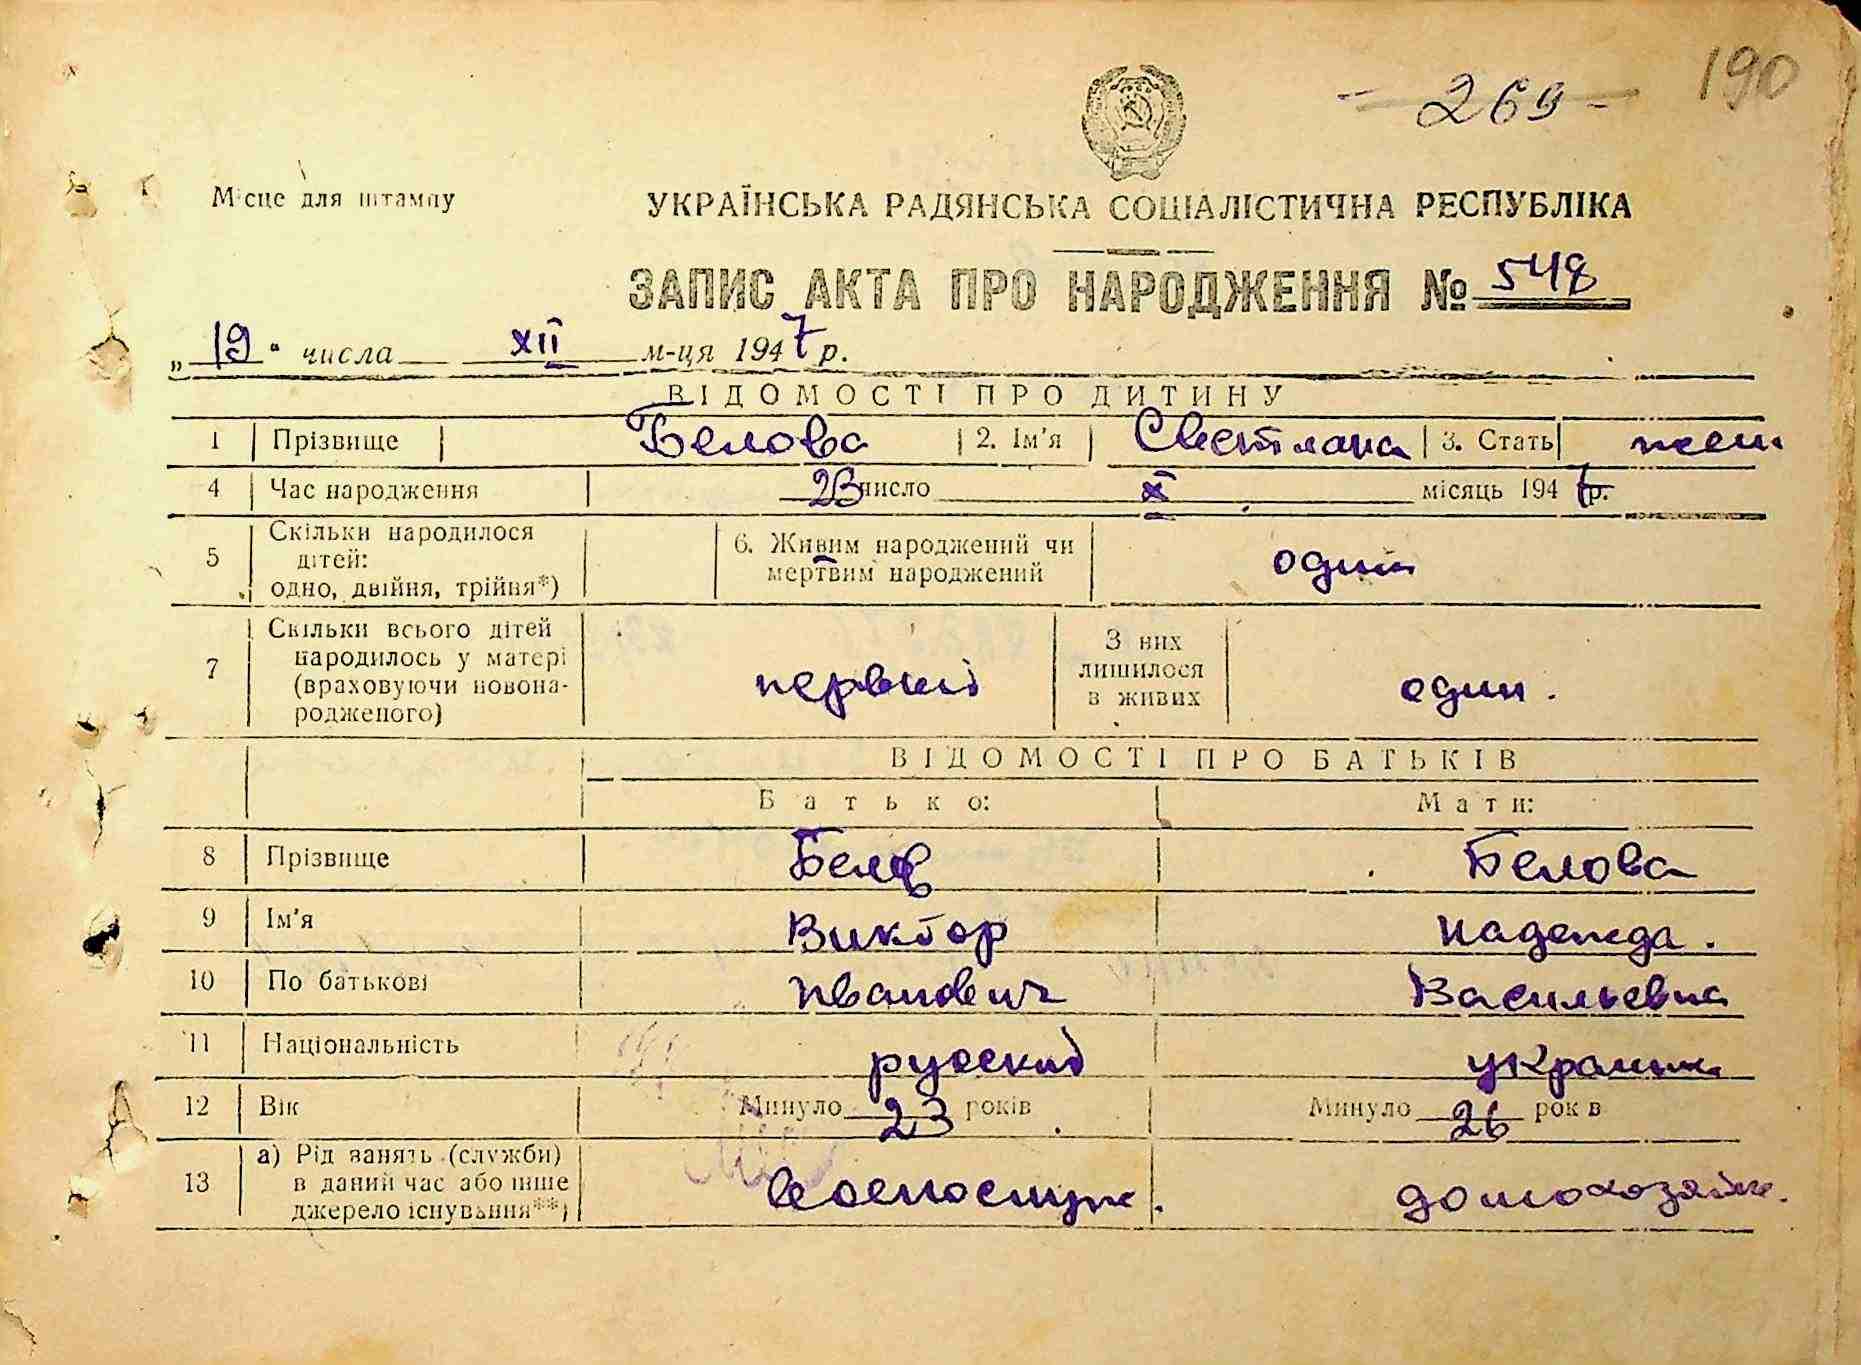 190
- 269 -
Місце для штампу
УКРАЇНСЬКА РАДЯНСЬКА СОЦІАЛІСТИЧНА РЕСПУБЛІКА
ЗАПИС АКТА ПРО НАРОДЖЕННЯ № 548
„ 19 " числа XII м-ця 1947 р.
ВІДОМОСТІ ПРО ДИТИНУ
1 Прізвище Белова 2. Ім'я Светлана 3. Стать жен
4 Час народження 23 число X місяць 1947 р.
5 Скільки народилося дітей: одно, двійня, трійня*) 6. Живим народжений чи мертвим народжений один
7 Скільки всього дітей народилось у матері (враховуючи новонародженого) первый З них лишилося в живих один.
ВІДОМОСТІ ПРО БАТЬКІВ
Батько: Мати:
8 Прізвище Белов Белова
9 Ім'я Виктор Надежда.
10 По батькові Иванович Васильевна
11 Національність русский украинк
12 Вік Минуло 23 років Минуло 26 рок в
13 а) Рід занять (служби) в даний час або інше джерело існування**) военослуж. домохозяйк.